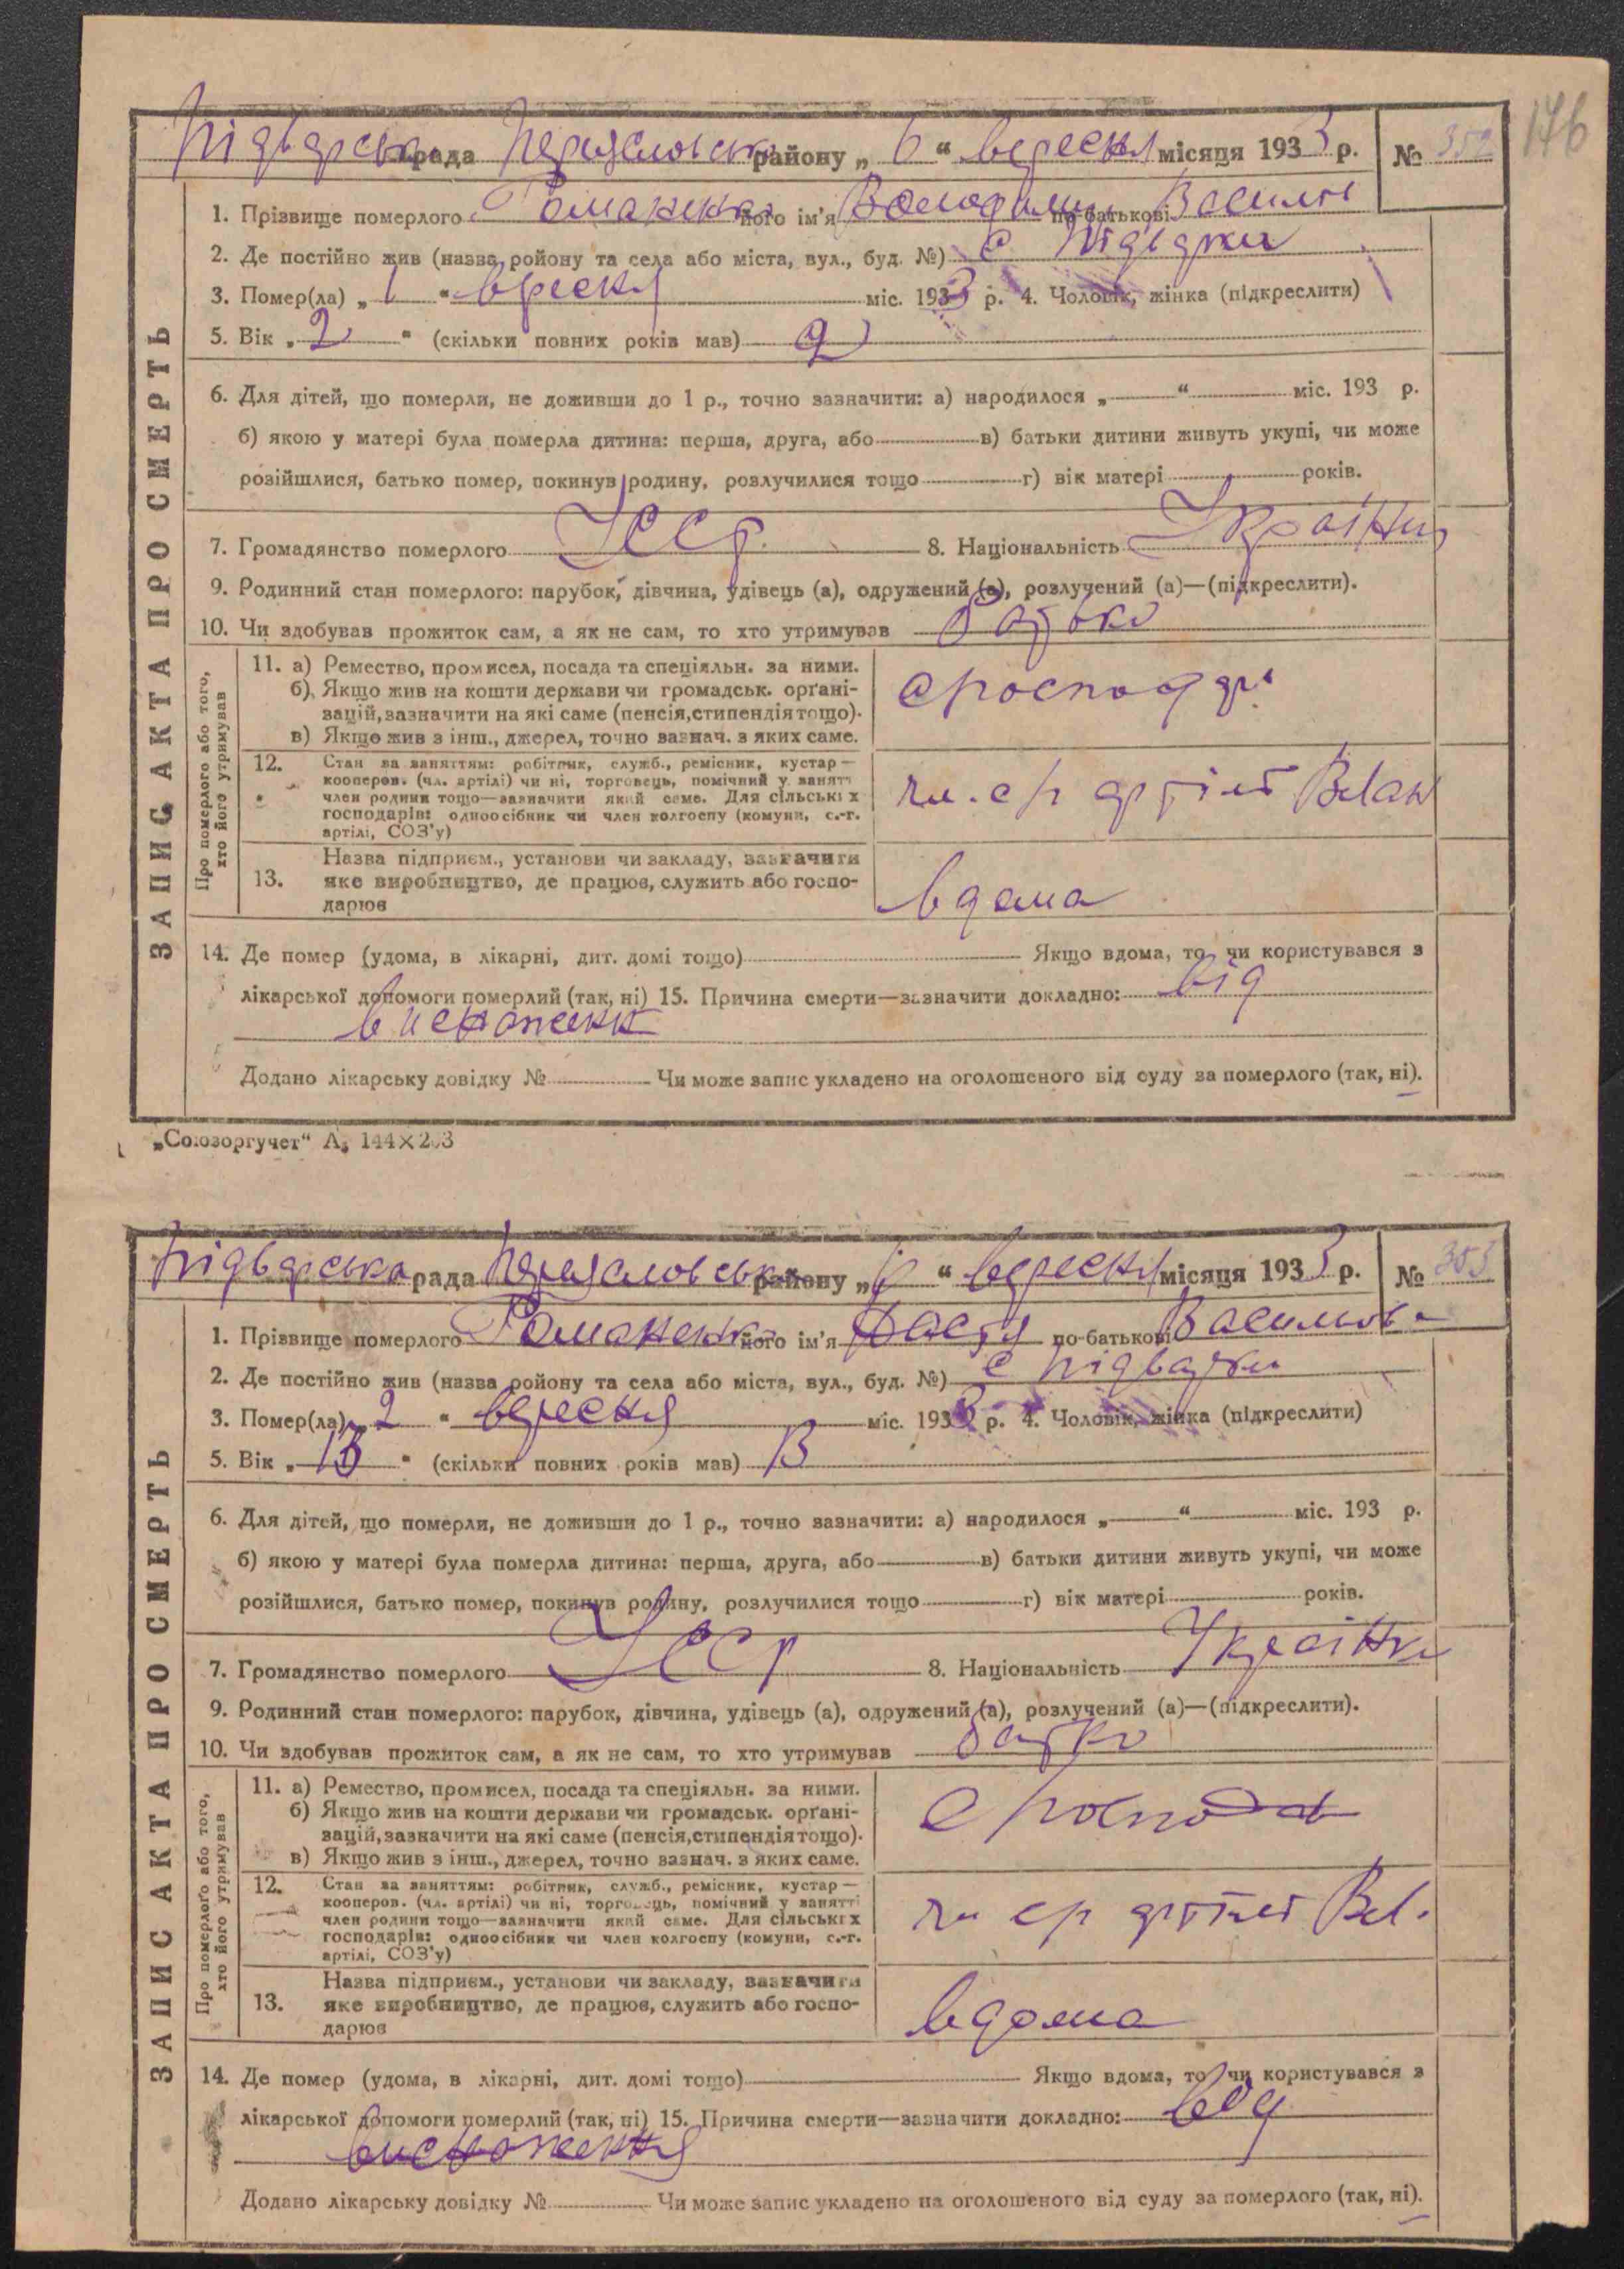 Підварська рада Переяславськ району „ 6 “ вересня місяця 1933 р. № 352
176
1. Прізвище померлого Романенко його ім'я Володимир по-батькові Василів
2. Де постійно жив (назва ройону та села або міста, вул., буд. №) с Підварки
3. Помер(ла) „ 1 “ вресня міс. 1933 р. 4. Чоловік, жінка (підкреслити)
5. Вік „ 2 “ (скільки повних років мав) 2
6. Для дітей, що померли, не доживши до 1 р., точно зазначити: а) народилося „ “ міс. 193 р.
б) якою у матері була померла дитина: перша, друга, або в) батьки дитини живуть укупі, чи може
розійшлися, батько помер, покинув родину, розлучилися тощо г) вік матері років.
7. Громадянство померлого УССР 8. Національність Україн
9. Родинний стан померлого: парубок, дівчина, удівець (а), одружений (а), розлучений (а)—(підкреслити).
10. Чи здобував прожиток сам, а як не сам, то хто утримував батько
ЗАПИС АКТА ПРО СМЕРТЬ
Про померлого або того, хто його утримував
11. а) Ремество, промисел, посада та спеціяльн. за ними.
б) Якщо жив на кошти держави чи громадськ. орґані-
зацій, зазначити на які саме (пенсія, стипендія тощо).
в) Якщо жив з інш., джерел, точно зазнач. з яких саме.
12. Стан за заняттям: робітник, служб., ремісник, кустар—
кооперов. (чл. артілі) чи ні, торговець, помічний у занятті
член родини тощо—зазначити який саме. Для сільських
господарів: одноосібник чи член колгоспу (комуни, с.-г.
артілі, СОЗ'у)
чл. с г артілі
13. Назва підприєм., установи чи закладу, зазначити
яке виробництво, де працює, служить або госпо-
дарює
вдома
14. Де помер (удома, в лікарні, дит. домі тощо) Якщо вдома, то чи користувався з
лікарської допомоги померлий (так, ні) 15. Причина смерти—зазначити докладно: від
виснаженн
Додано лікарську довідку № Чи може запис укладено на оголошеного від суду за померлого (так, ні).
„Союзоргучет“ А5 144×203
Підварська рада Переяславськ району „ 6 “ вересня місяця 1933 р. № 353
1. Прізвище померлого Романенко його ім'я по-батькові Василівна
2. Де постійно жив (назва ройону та села або міста, вул., буд. №) с Підварки
3. Помер(ла) „ 2 “ вересня міс. 1933 р. 4. Чоловік, жінка (підкреслити)
5. Вік „ 13 “ (скільки повних років мав) 13
6. Для дітей, що померли, не доживши до 1 р., точно зазначити: а) народилося „ “ міс. 193 р.
б) якою у матері була померла дитина: перша, друга, або в) батьки дитини живуть укупі, чи може
розійшлися, батько помер, покинув родину, розлучилися тощо г) вік матері років.
7. Громадянство померлого УССР 8. Національність Українк
9. Родинний стан померлого: парубок, дівчина, удівець (а), одружений (а), розлучений (а)—(підкреслити).
10. Чи здобував прожиток сам, а як не сам, то хто утримував батко
ЗАПИС АКТА ПРО СМЕРТЬ
Про померлого або того, хто його утримував
11. а) Ремество, промисел, посада та спеціяльн. за ними.
б) Якщо жив на кошти держави чи громадськ. орґані-
зацій, зазначити на які саме (пенсія, стипендія тощо).
в) Якщо жив з інш., джерел, точно зазнач. з яких саме.
12. Стан за заняттям: робітник, служб., ремісник, кустар—
кооперов. (чл. артілі) чи ні, торговець, помічний у занятті
член родини тощо—зазначити який саме. Для сільських
господарів: одноосібник чи член колгоспу (комуни, с.-г.
артілі, СОЗ'у)
чл ср артілі
13. Назва підприєм., установи чи закладу, зазначити
яке виробництво, де працює, служить або госпо-
дарює
вдома
14. Де помер (удома, в лікарні, дит. домі тощо) Якщо вдома, то чи користувався з
лікарської допомоги померлий (так, ні) 15. Причина смерти—зазначити докладно: від
виснаження
Додано лікарську довідку № Чи може запис укладено на оголошеного від суду за померлого (так, ні).